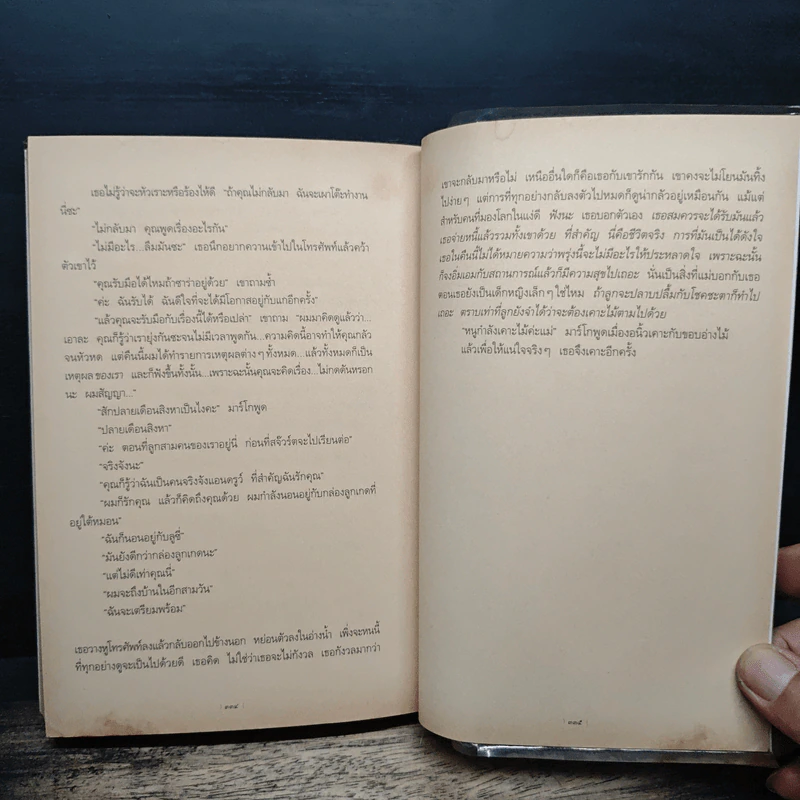 เธอไม่รู้ว่าจะหัวเราะหรือร้องไห้ดี "ถ้าคุณไม่กลับมา ฉันจะเผาโต๊ะทำงาน
นี่ซะ"
"ไม่กลับมา คุณพูดเรื่องอะไรกัน"
"ไม่มีอะไร...ลืมมันซะ" เธอนึกอยากควานเข้าไปในโทรศัพท์แล้วคว้า
ตัวเขาไว้
"คุณรับมือได้ไหมถ้าซาร่าอยู่ด้วย" เขาถามซ้ำ
"ค่ะ ฉันรับได้ ฉันดีใจที่จะได้มีโอกาสอยู่กับแกอีกครั้ง"
"แล้วคุณจะรับมือกับเรื่องนี้ได้หรือเปล่า" เขาถาม "ผมมาคิดดูแล้วว่า...
เอาละ คุณก็รู้ว่าเรายุ่งกันซะจนไม่มีเวลาพูดกัน...ความคิดนี้อาจทำให้คุณกลัว
จนหัวหด แต่คืนนี้ผมได้ทำรายการเหตุผลต่างๆ ทั้งหมด...แล้วทั้งหมดก็เป็น
เหตุผลของเรา และก็ฟังขึ้นทั้งนั้น...เพราะฉะนั้นคุณจะคิดเรื่อง...ไม่กดดันหรอก
นะ ผมสัญญา..."
"สักปลายเดือนสิงหาเป็นไงคะ" มาร์โกพูด
"ปลายเดือนสิงหา"
"ค่ะ ตอนที่ลูกสามคนของเราอยู่นี่ ก่อนที่สจ๊วร์ตจะไปเรียนต่อ"
"จริงจังนะ"
"คุณก็รู้ว่าฉันเป็นคนจริงจังแอนดรูว์ ที่สำคัญฉันรักคุณ"
"ผมก็รักคุณ แล้วก็คิดถึงคุณด้วย ผมกำลังนอนอยู่กับกล่องลูกเกดที่
อยู่ใต้หมอน"
"ฉันก็นอนอยู่กับลูซี่"
"มันยังดีกว่ากล่องลูกเกดนะ"
"แต่ไม่ดีเท่าคุณนี่"
"ผมจะถึงบ้านในอีกสามวัน"
"ฉันจะเตรียมพร้อม"
เธอวางหูโทรศัพท์ลงแล้วกลับออกไปข้างนอก หย่อนตัวลงในอ่างน้ำ เพิ่งจะหนนี้
ที่ทุกอย่างดูจะเป็นไปด้วยดี เธอคิด ไม่ใช่ว่าเธอจะไม่กังวล เธอกังวลมากว่า
๓๓๔
เขาจะกลับมาหรือไม่ เหนืออื่นใดก็คือเธอกับเขารักกัน เขาคงจะไม่โยนมันทิ้ง
ไปง่ายๆ แต่การที่ทุกอย่างกลับลงตัวไปหมดก็ดูน่ากลัวอยู่เหมือนกัน แม้แต่
สำหรับคนที่มองโลกในแง่ดี ฟังนะ เธอบอกตัวเอง เธอสมควรจะได้รับมันแล้ว
เธอจ่ายหนี้แล้วรวมทั้งเขาด้วย ที่สำคัญ นี่คือชีวิตจริง การที่มันเป็นได้ดังใจ
เธอในคืนนี้ไม่ได้หมายความว่าพรุ่งนี้จะไม่มีอะไรให้ประหลาดใจ เพราะฉะนั้น
ก็จงอิ่มเอมกับสถานการณ์แล้วก็มีความสุขไปเถอะ นั่นเป็นสิ่งที่แม่บอกกับเธอ
ตอนเธอยังเป็นเด็กหญิงเล็กๆ ใช่ไหม ถ้าลูกจะปลาบปลื้มกับโชคชะตาก็ทำไป
เถอะ ตราบเท่าที่ลูกยังจำได้ว่าจะต้องเคาะไม้ตามไปด้วย
"หนูกำลังเคาะไม้ค่ะแม่" มาร์โกพูดเมื่องอนิ้วเคาะกับขอบอ่างไม้
แล้วเพื่อให้แน่ใจจริงๆ เธอจึงเคาะอีกครั้ง
๓๓๕